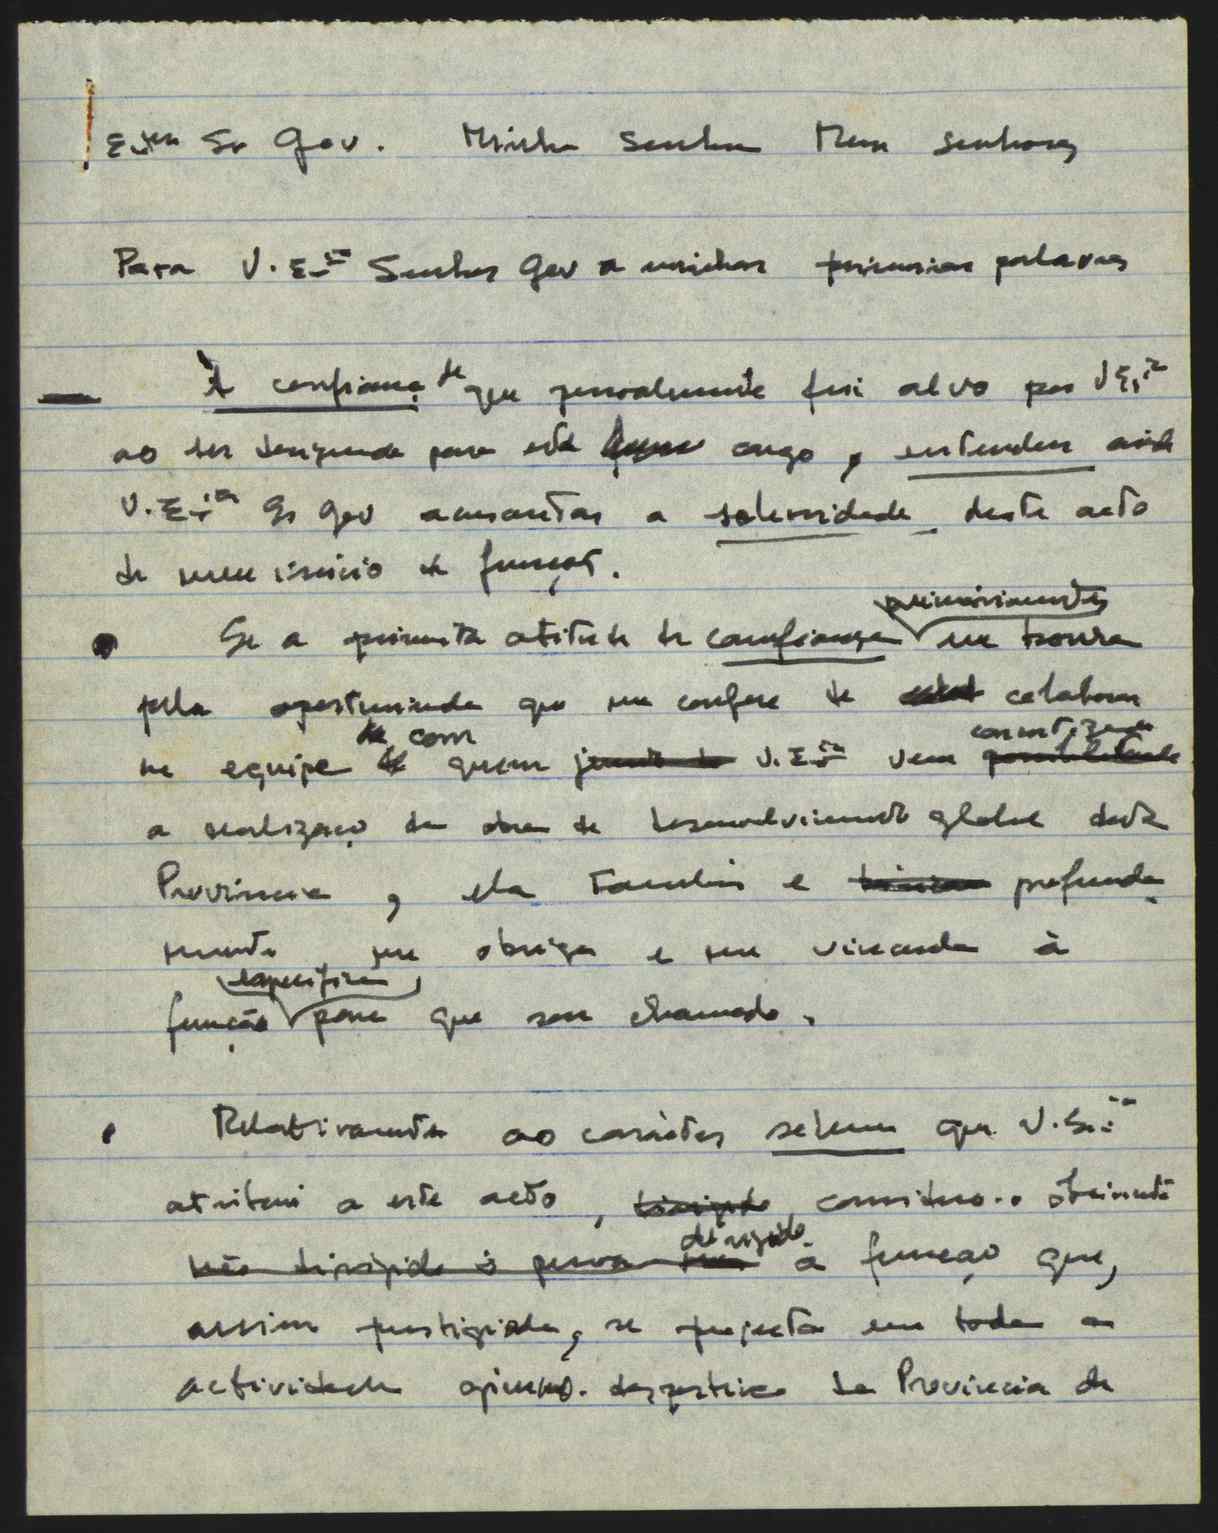 Exmo Sr Gov. Minha Senhora Meus Senhores
Para V. Exia Senhor Gov as minhas primeiras palavras
À confiança de que pessoalmente fui alvo por V Exia
ao ser designado para este cargo, entendeu ainda
V. Exia Sr Gov acrescentar a solenidade deste acto
de meu início de funções.
primeiramente
Se a primeira atitude de confiança me honra
pela oportunidade que me confere de colaborar
de com concretizando
na equipe quem junto de V. Exia vem possibilitando
a realização da obra de desenvolvimento global desta
Província, ela também e profunda
mente me obriga e me vincula à
específica
função para que sou chamado.
Relativamente ao carácter solene que V. Exia
atribui a este acto, dirigido, considero-o obviamente
dirigido
não dirigido à pessoa mas à função que,
assim prestigiada, se projecta em toda a
actividade gimno-desportiva da Província de